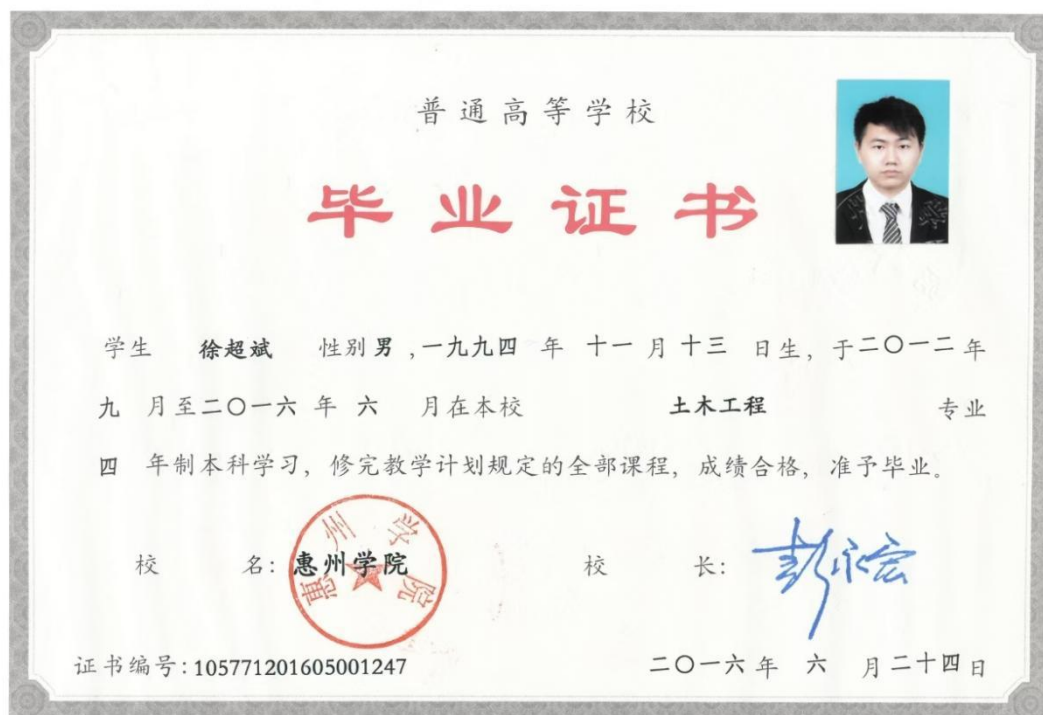 普通高等学校
毕业证书
学生 徐超斌 性别男，一九九四年十一月十三日生，于二〇一二年
九月至二〇一六年六月在本校 土木工程 专业
四年制本科学习，修完教学计划规定的全部课程，成绩合格，准予毕业。
校 名：惠州学院 校 长：彭永宏
惠州学院
证书编号：105771201605001247 二〇一六年六月二十四日